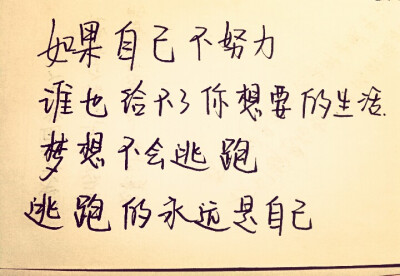 如果自己不努力
谁也给不了你想要的生活.
梦想不会逃跑
逃跑的永远是自己